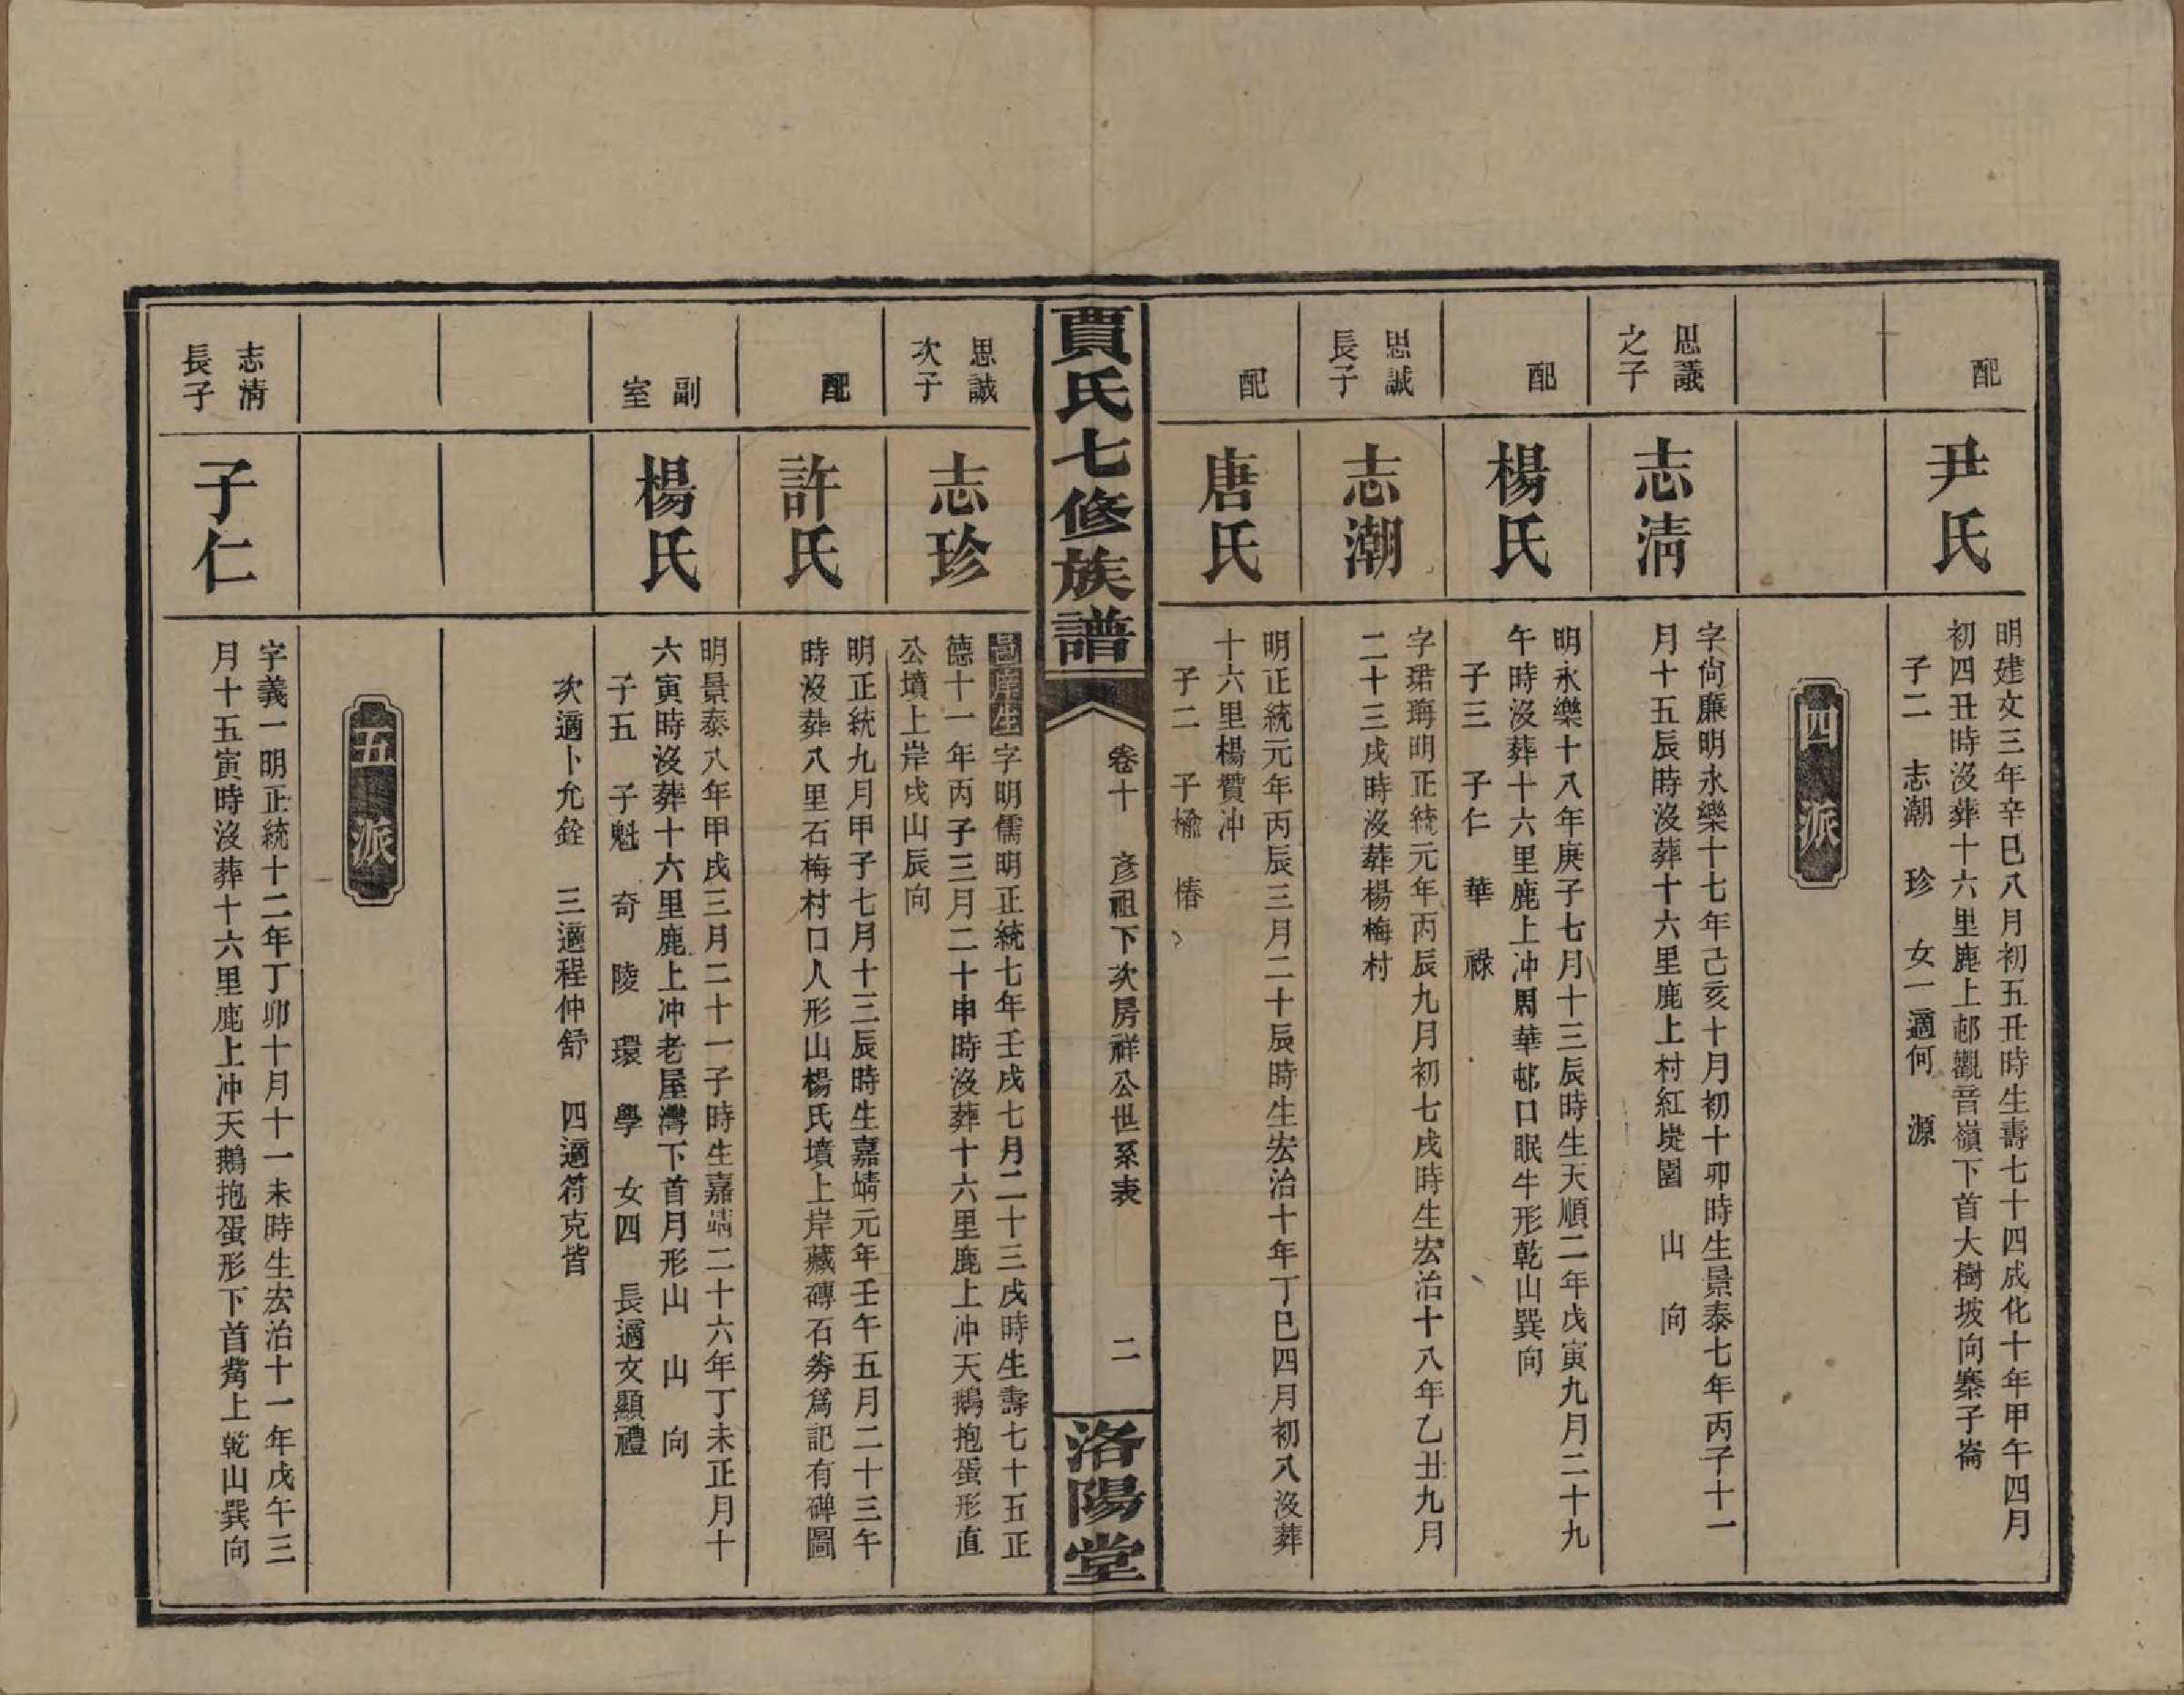 配
尹氏
明建文三年辛巳八月初五丑時生壽七十四成化十年甲午四月
初四丑時沒葬十六里鹿上邨觀音嶺下首大樹坡向寨子崙
子二　志潮　珍　女一適何　源
四派
思議
之子
志清
字尙廉明永樂十七年己亥十月初十卯時生景泰七年丙子十一
月十五辰時沒葬十六里鹿上村紅埦園　山　向
配
楊氏
明永樂十八年庚子七月十三辰時生天順二年戊寅九月二十九
午時沒葬十六里鹿上冲周華邨口眠牛形乾山巽向
子三　子仁　華　祿
思誠
長子
志潮
字珺瑇明正統元年丙辰九月初七戌時生宏治十八年乙丑九月
二十三戌時沒葬楊梅村
配
唐氏
明正統元年丙辰三月二十辰時生宏治十年丁巳四月初八沒葬
十六里楊贊冲
子二　子檢　椿
賈氏七修族譜
卷十　彥祖下次房祥公世系表
二
洛陽堂
思誠
次子
志珍
邑庠生字明儒明正統七年壬戌七月二十三戌時生壽七十五正
德十一年丙子三月二十申時沒葬十六里鹿上冲天鵝抱蛋形直
公墳上岸戌山辰向
配
許氏
明正統九月甲子七月十三辰時生嘉靖元年壬午五月二十三午
時沒葬八里石梅村口人形山楊氏墳上岸藏磚石券爲記有碑圖
副
室
楊氏
明景泰八年甲戌三月二十一子時生嘉靖二十六年丁未正月十
六寅時沒葬十六里鹿上冲老屋灣下首月形山　山　向
子五　子魁　奇　陵　環　學　女四　長適文顯禮
次適卜允銓　三適程仲舒　四適符克皆
五派
志清
長子
子仁
字義一明正統十二年丁卯十月十一未時生宏治十一年戊午三
月十五寅時沒葬十六里鹿上冲天鵝抱蛋形下首觜上乾山巽向